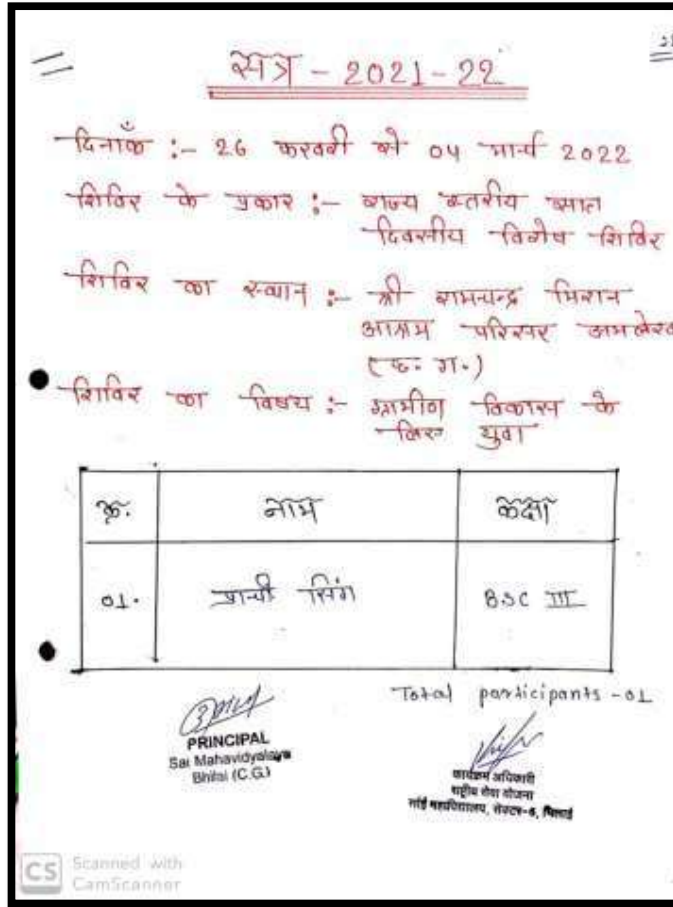 सत्र - 2021-22
दिनाँक :- 26 फरवरी से 04 मार्च 2022
शिविर के प्रकार :- राज्य स्तरीय सात
दिवसीय विशेष शिविर
शिविर का स्थान :- श्री रामचन्द्र मिशन
आश्रम परिसर
(छ. ग.)
शिविर का विषय :- ग्रामीण विकास के
लिए युवा
क्र. नाम कक्षा
01. प्राची सिंग B.SC III
Total participants - 01
PRINCIPAL
Sai Mahavidyalaya
Bhilai (C.G.)
कार्यक्रम अधिकारी
राष्ट्रीय सेवा योजना
साँई महाविद्यालय, सेक्टर-6, भिलाई
CS Scanned with
CamScanner